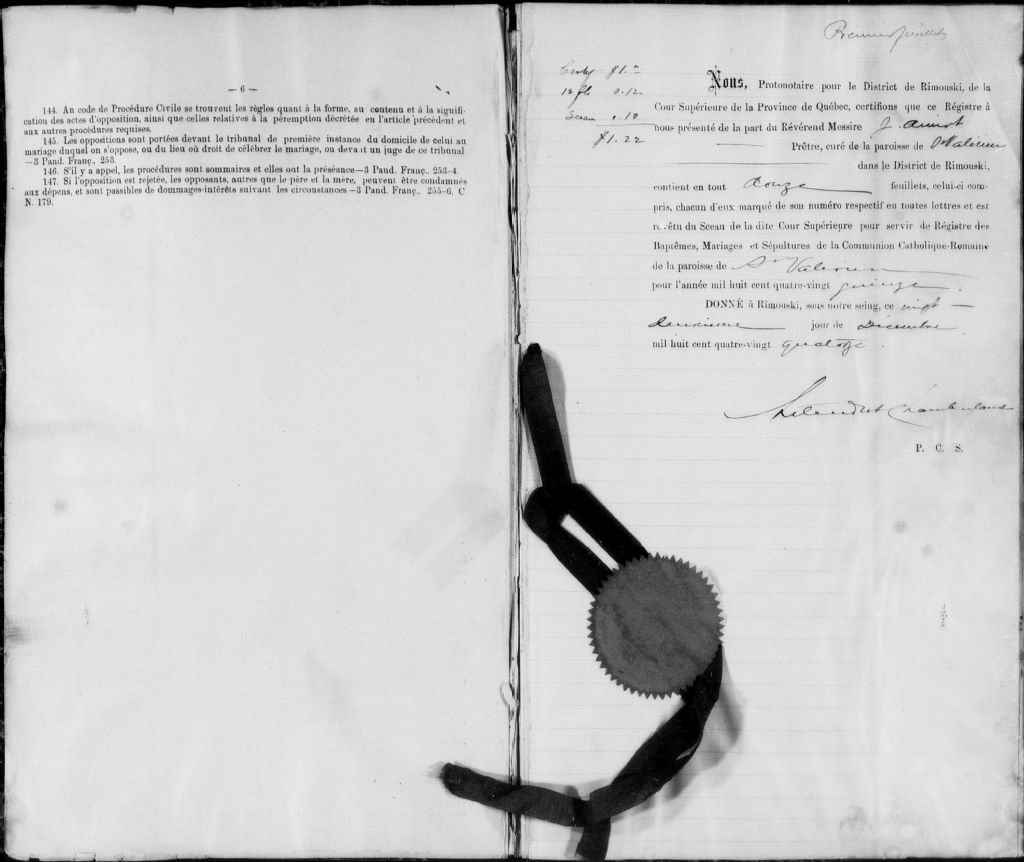 — 6 —
144. Au code de Procédure Civile se trouvent les règles quant à la forme, au contenu et à la signifi-
cation des actes d'opposition, ainsi que celles relatives à la péremption décrétée en l'article précédent et
aux autres procédures requises.
145. Les oppositions sont portées devant le tribunal de première instance du domicile de celui au
mariage duquel on s'oppose, ou du lieu où droit de célébrer le mariage, ou devant un juge de ce tribunal
—3 Pand. Franç., 253.
146. S'il y a appel, les procédures sont sommaires et elles ont la préséance—3 Pand. Franç., 253-4.
147. Si l'opposition est rejetée, les opposants, autres que le père et la mère, peuvent être condamnés
aux dépens, et sont passibles de dommages-intérêts suivant les circonstances—3 Pand. Franç., 255-6. C
N. 179.
Premier feuillet
$1.
12 fts 0.12
Sceau 0.10
$1.22
Nous, Protonotaire pour le District de Rimouski, de la
Cour Supérieure de la Province de Québec, certifions que ce Régistre à
nous présenté de la part du Révérend Messire J.
Prêtre, curé de la paroisse de St Valérien
dans le District de Rimouski,
contient en tout douze feuillets, celui-ci com-
pris, chacun d'eux marqué de son numéro respectif en toutes lettres et est
revêtu du Sceau de la dite Cour Supérieure pour servir de Régistre des
Baptêmes, Mariages et Sépultures de la Communion Catholique-Romaine
de la paroisse de St Valérien
pour l'année mil huit cent quatre-vingt quinze.
DONNÉ à Rimouski, sous notre seing, ce vingt —
deuxième jour de Décembre
mil huit cent quatre-vingt quatorze.
Chamberland
P. C. S.